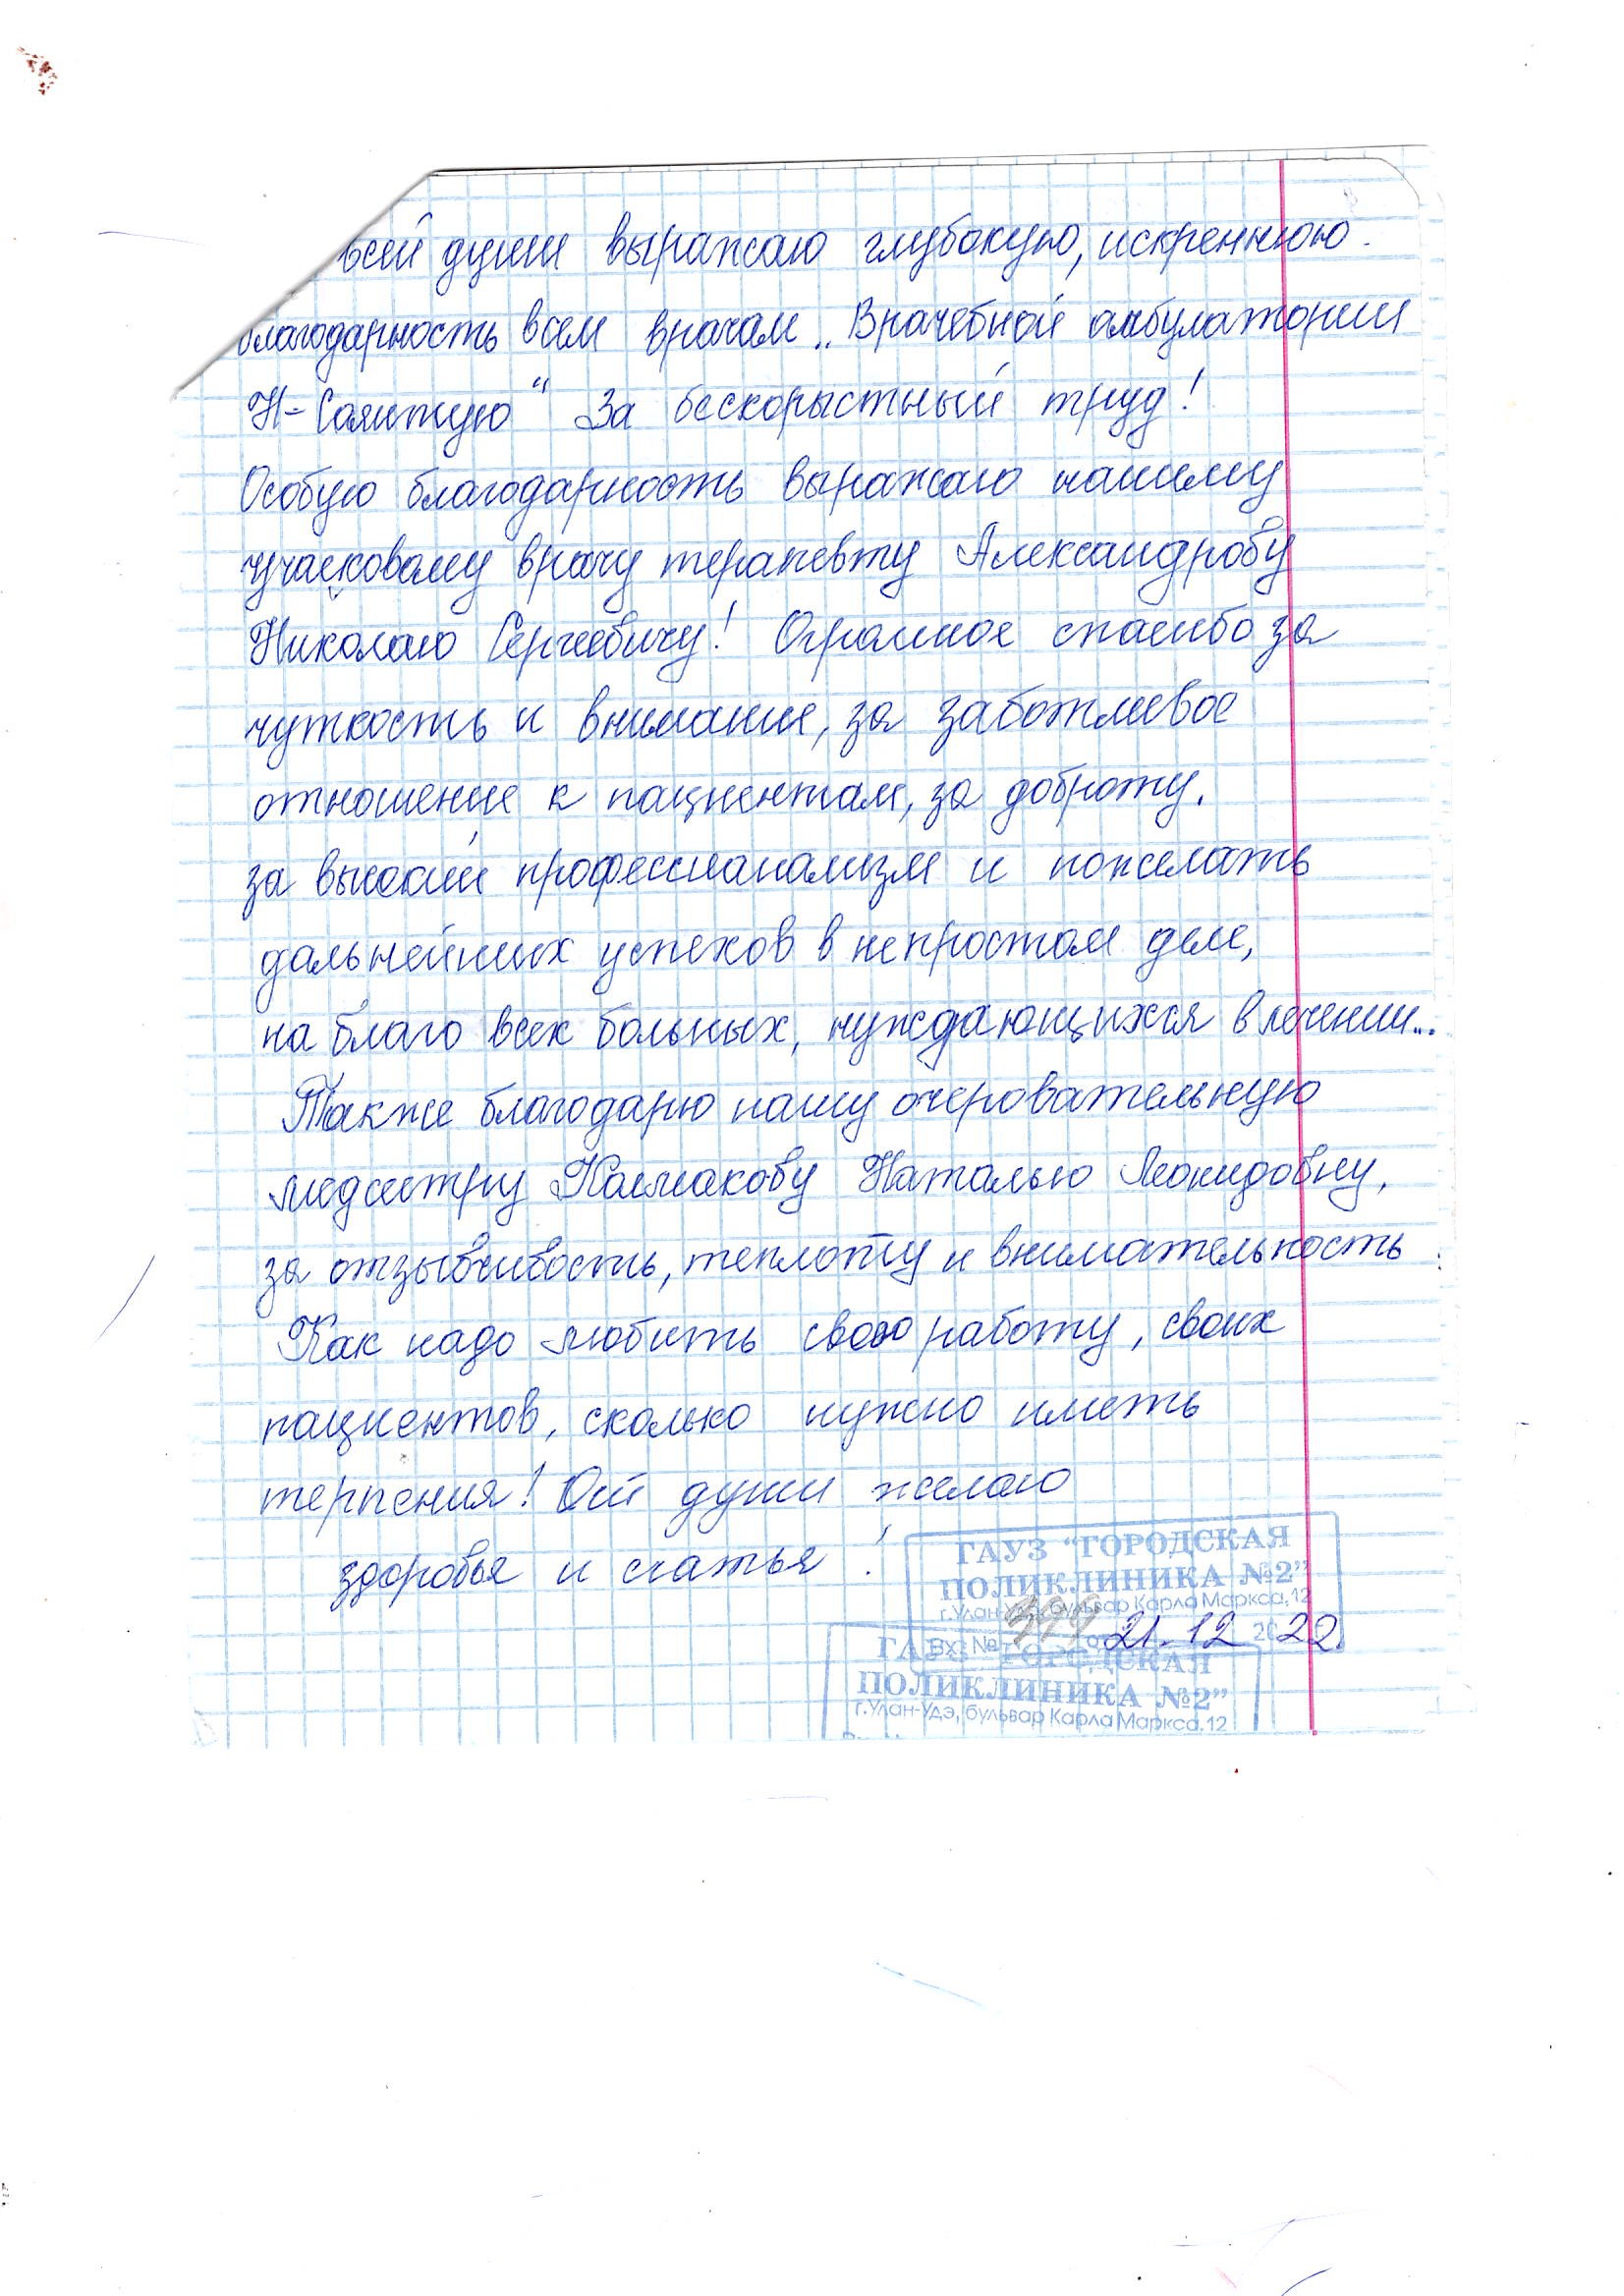 всей души выражаю глубокую, искреннюю
благодарность всем врачам „Врачебной амбулатории
Н-Саянтую" За бескорыстный труд!
Особую благодарность выражаю нашему
участковому врачу терапевту Александрову
Николаю Сергеевичу! Огромное спасибо за
чуткость и внимание, за заботливое
отношение к пациентам, за доброту.
за высокий профессианализм и пожелать
дальнейших успехов в непростом деле,
на благо всех больных, нуждающихся в лечении...
Также благодарю нашу очеровательную
медсестру Колмакову Наталью Леонидовну,
за отзывчивость, теплоту и внимательность
Как надо любить свою работу, своих
пациентов, сколько нужно иметь
терпения! От души желаю
здоровья и счастья!
ГАУЗ "ГОРОДСКАЯ
ПОЛИКЛИНИКА №2"
г.Улан-Удэ, бульвар Карла Маркса, 12
Вх. № 21.12 2022
ГОРОДСКАЯ
ПОЛИКЛИНИКА №2"
г.Улан-Удэ, бульвар Карла Маркса, 12